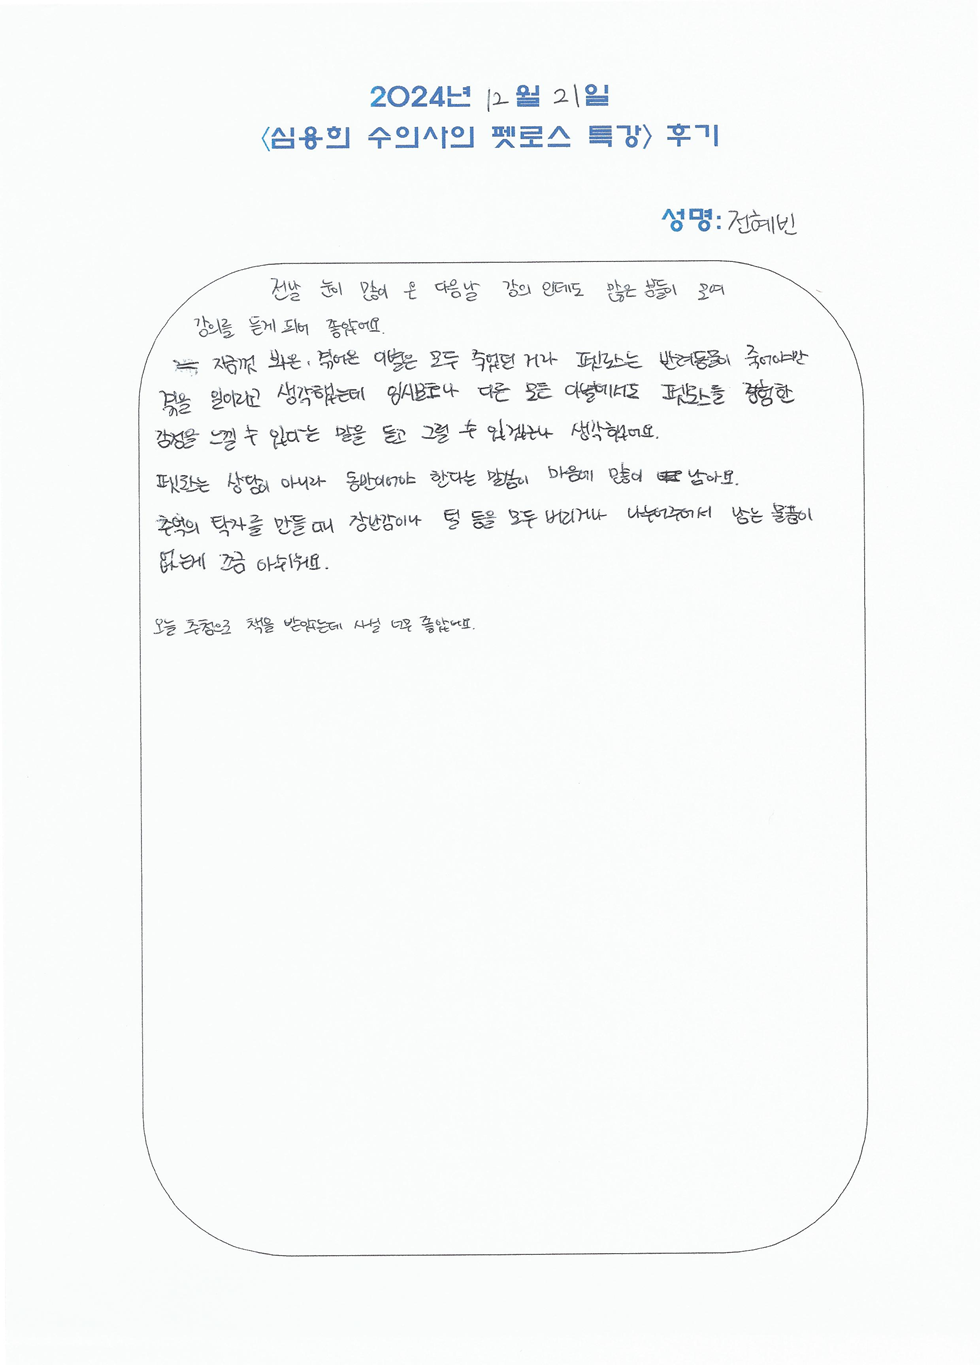 2024년 12월 21일
<심용희 수의사의 펫로스 특강> 후기
성명: 전혜빈
전날 눈이 많이 온 다음날 강의 인데도 많은 분들이 모여
강의를 듣게 되어 좋았어요.
지금껏 봐온, 겪어온 이별은 모두 죽었던 거라 펫로스는 반려동물이 죽어야만
겪을 일이라고 생각했는데 임시보호나 다른 모든 이별에서도 펫로스를 경험한
감정을 느낄 수 있다는 말을 듣고 그럴 수 있겠구나 생각했어요.
펫로스는 상담이 아니라 동반이어야 한다는 말씀이 마음에 많이 남아요.
추억의 탁자를 만들 때 장난감이나 털 등을 모두 버리거나 나누어주어서 남는 물품이
없는게 조금 아쉬워요.
오늘 추첨으로 책을 받았는데 사실 너무 좋았어요.